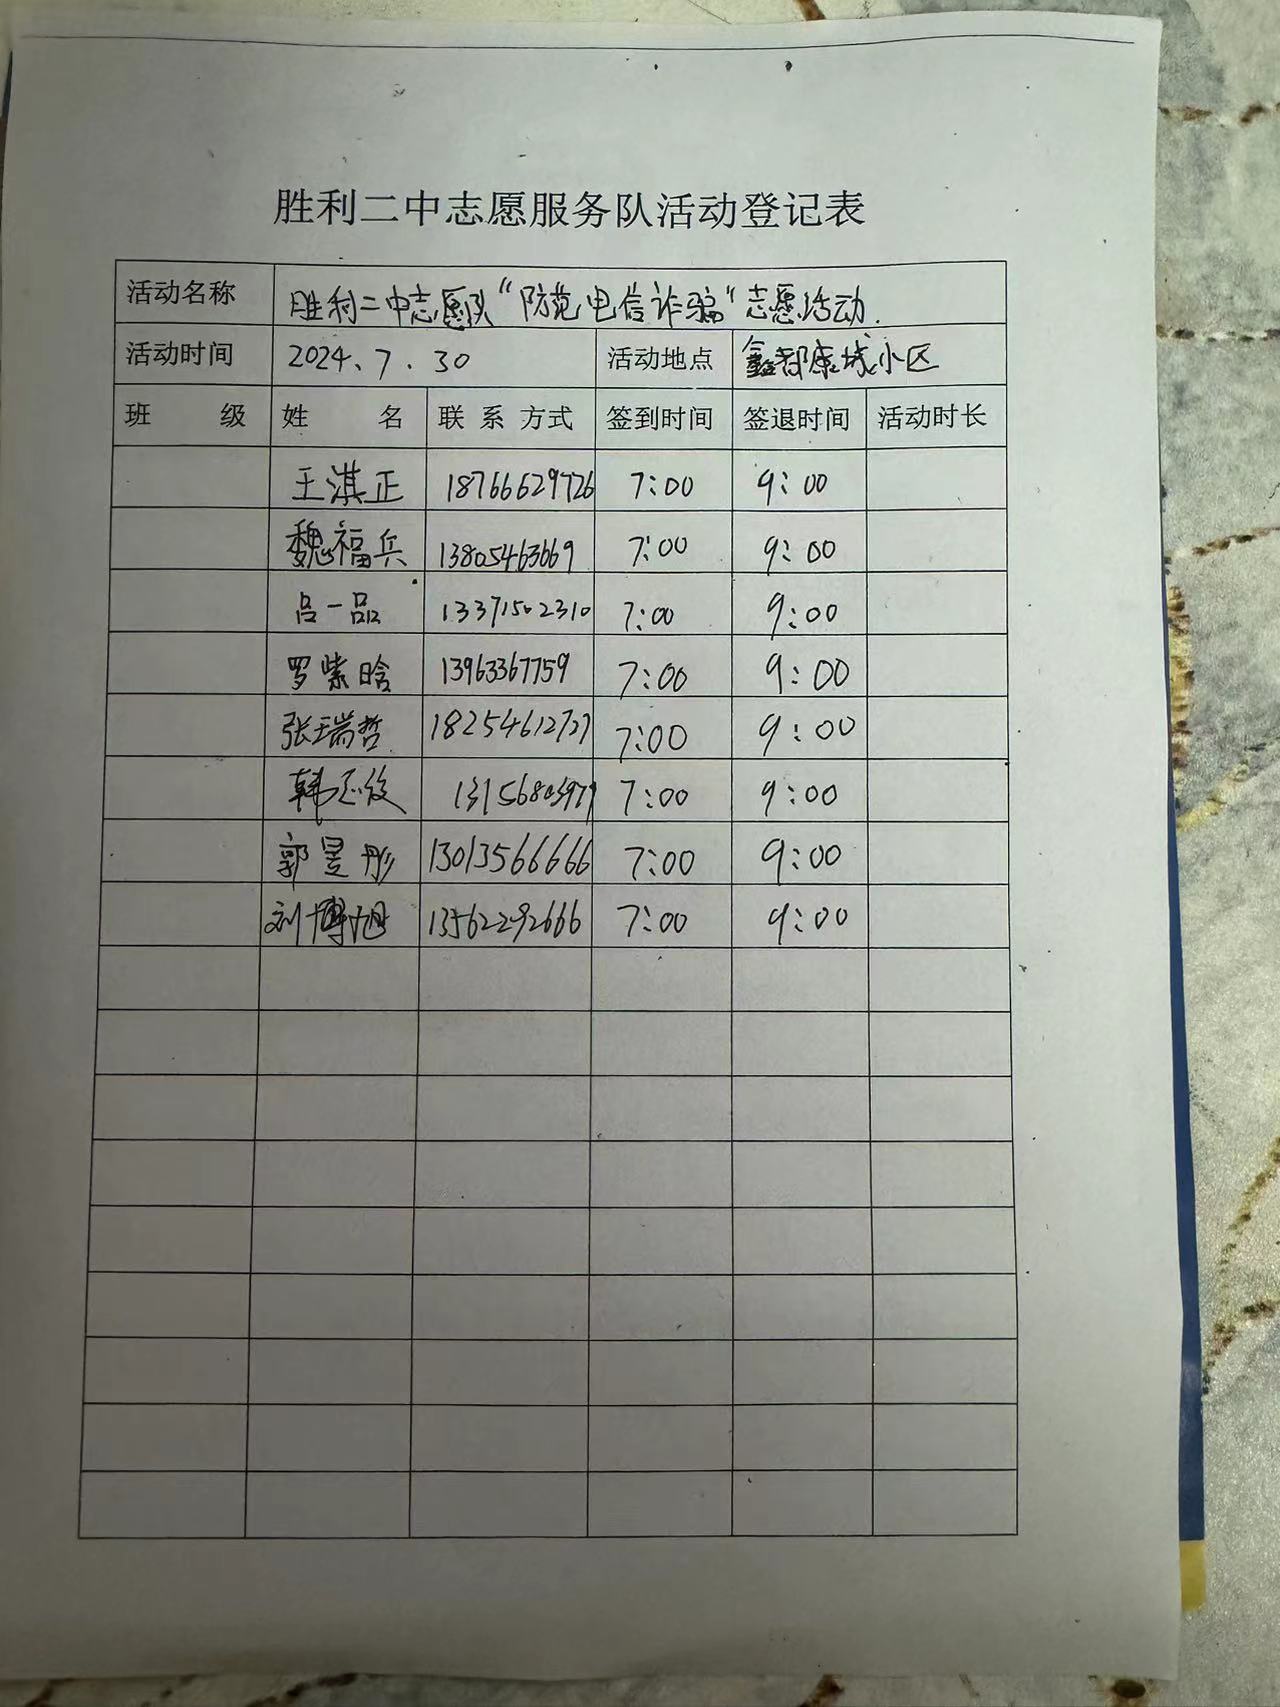 胜利二中志愿服务队活动登记表
活动名称 胜利二中志愿队“防范电信诈骗”志愿活动.
活动时间 2024、7.30 活动地点 鑫都康城小区
班 级 姓 名 联 系 方式 签到时间 签退时间 活动时长
王淇正 18766629726 7:00 9:00
魏福兵 13805463669 7:00 9:00
吕一品 13371502310 7:00 9:00
罗紫晗 13963367759 7:00 9:00
张瑞哲 7:00 9:00
韩 7:00 9:00
郭昱彤 13013566666 7:00 9:00
刘博旭 13562292666 7:00 9:00